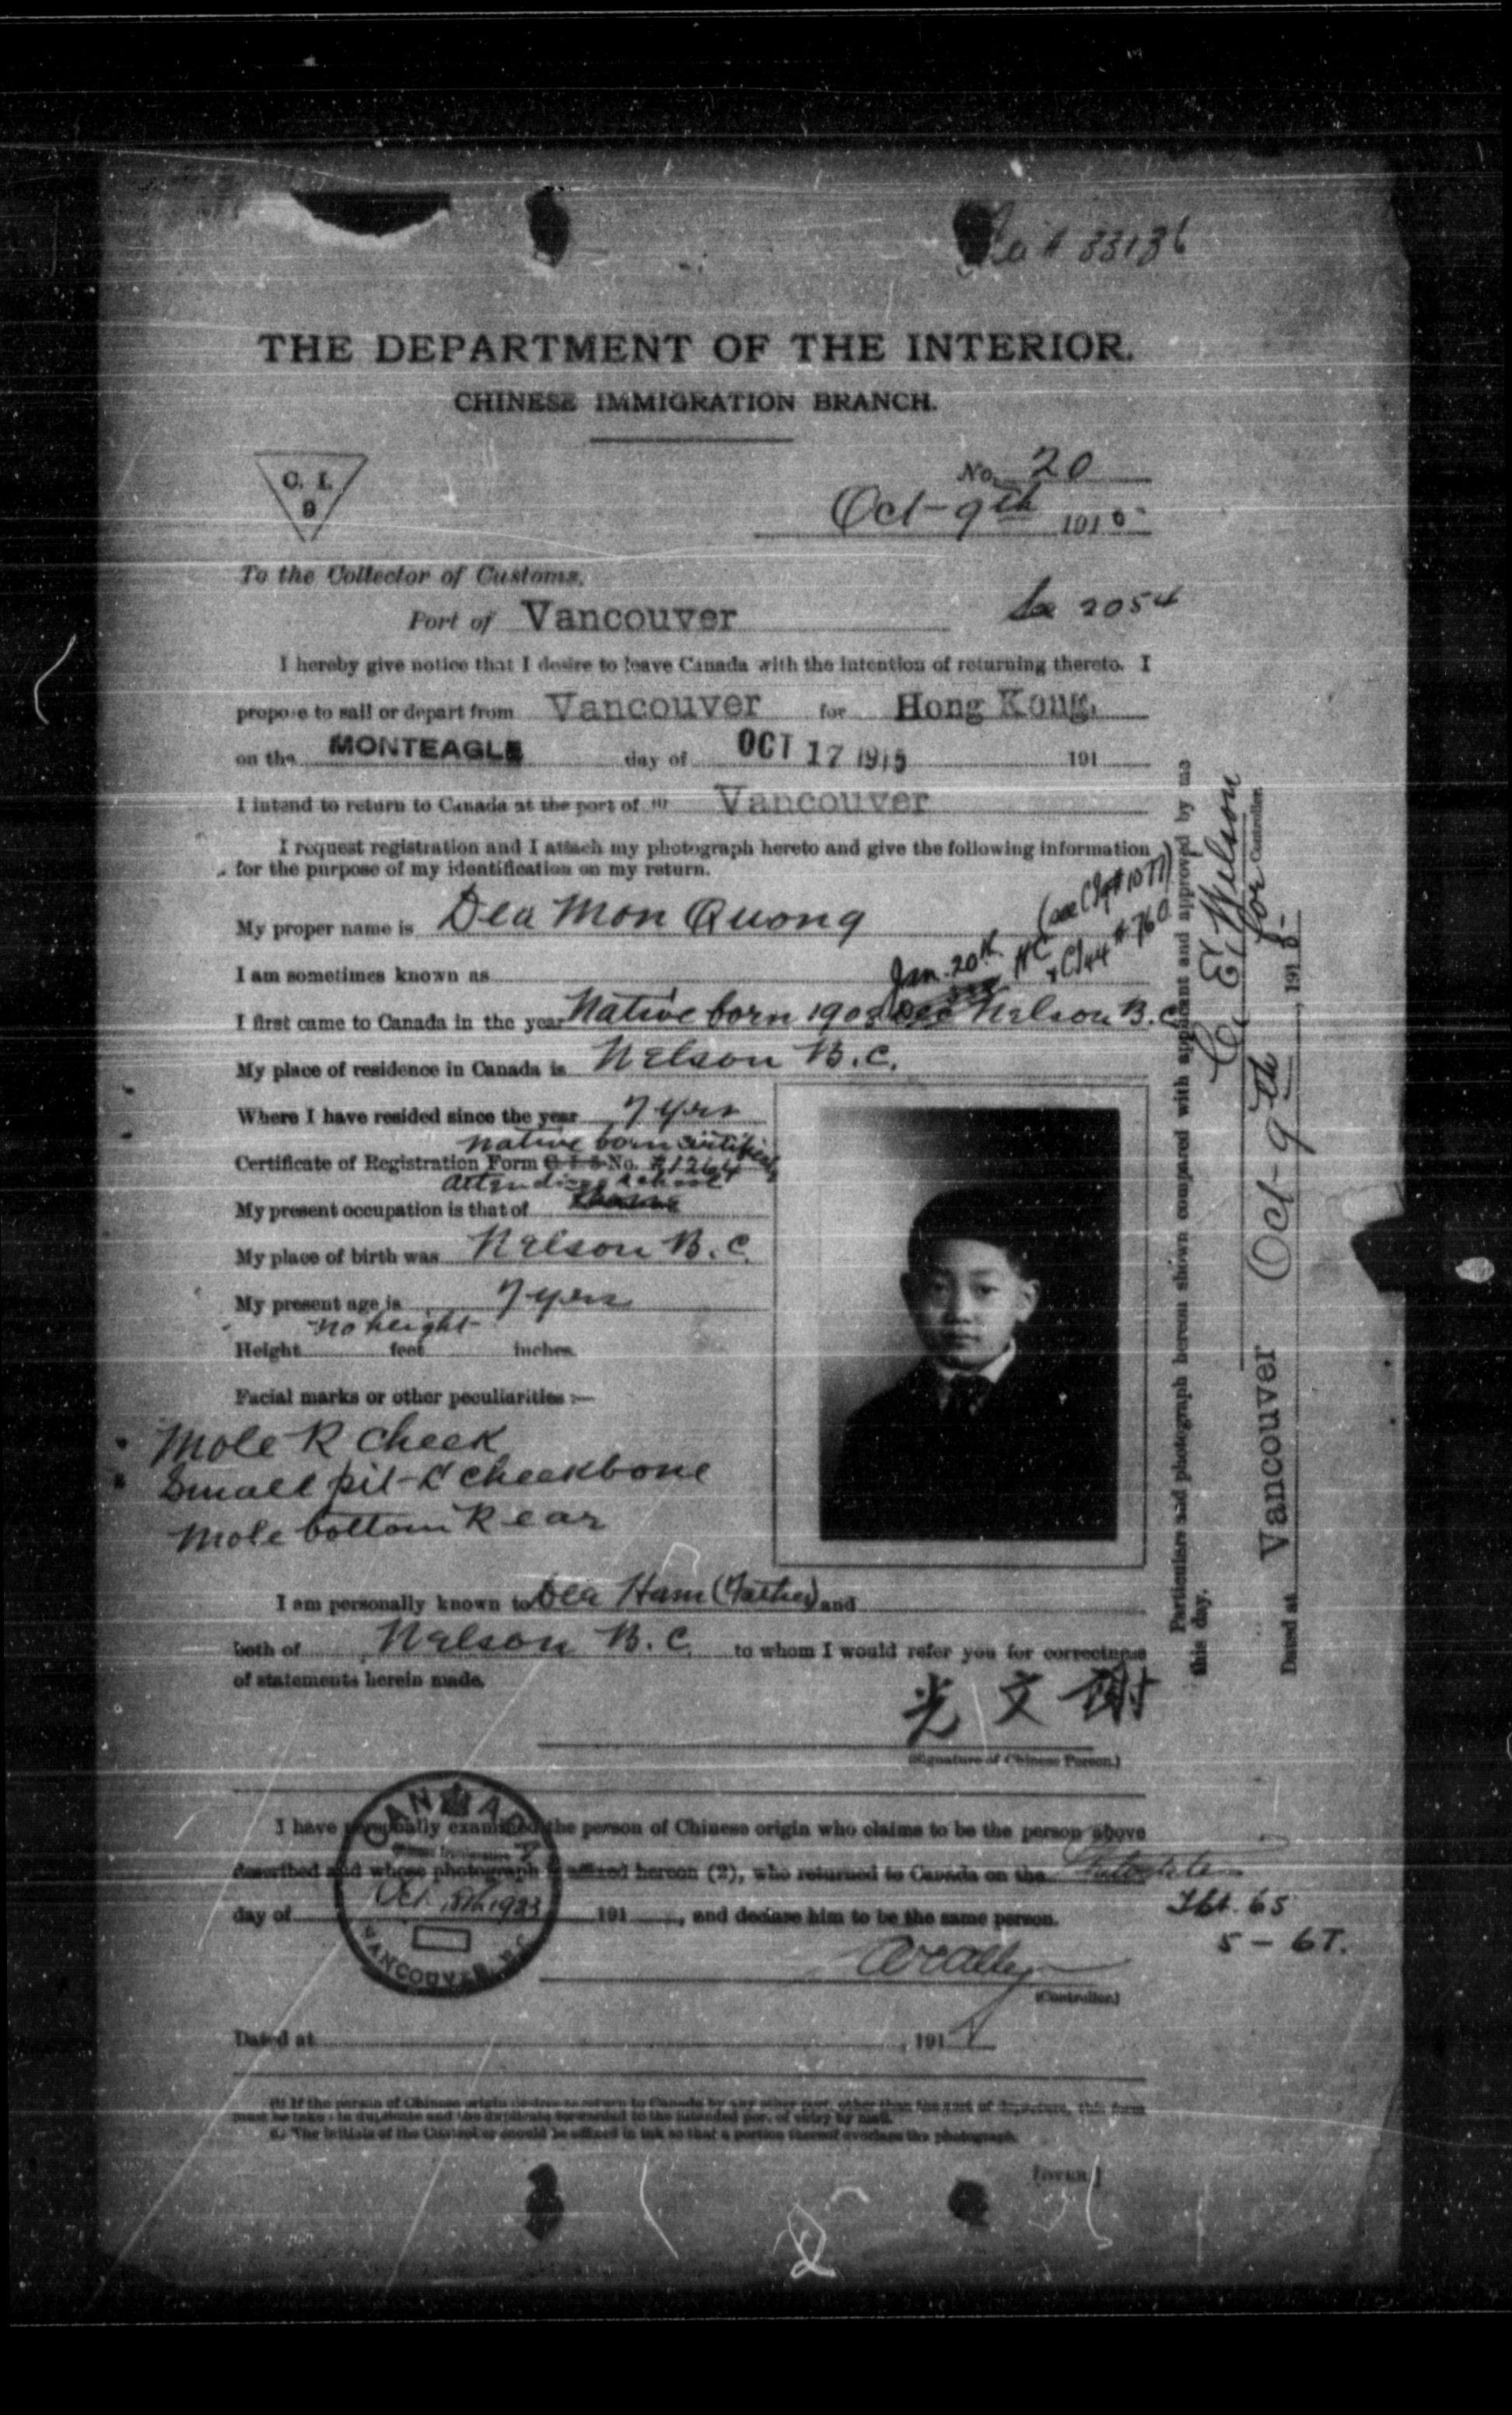 # 33136
THE DEPARTMENT OF THE INTERIOR.
CHINESE IMMIGRATION BRANCH.
C. I.
9
No. 20
Oct-9th 1915
To the Collector of Customs,
Port of Vancouver
2054
I hereby give notice that I desire to leave Canada with the intention of returning thereto. I
propose to sail or depart from Vancouver for Hong Kong,
on the MONTEAGLE day of OCT 17 1915 191
I intend to return to Canada at the port of (1) Vancouver
I request registration and I attach my photograph hereto and give the following information
for the purpose of my identification on my return.
(see CI9#1077)
My proper name is Dea Mon Quong
& CI44 # 760
I am sometimes known as
Jan. 20th
I first came to Canada in the year Native born 1908 Dec Nelson B.C.
My place of residence in Canada is Nelson B.C.
Where I have resided since the year 7 yrs
native born certificate
Certificate of Registration Form C I 5 No. #1264
attending school
My present occupation is that of
My place of birth was Nelson B.C.
My present age is 7 yrs
no height
Height feet inches.
Facial marks or other peculiarities :—
Mole R cheek
Small pit-L cheekbone
Mole bottom R ear
I am personally known to Dea Ham (Father) and
both of Nelson B.C. to whom I would refer you for correctness
of statements herein made.
光文謝
(Signature of Chinese Person.)
I have personally examined the person of Chinese origin who claims to be the person above
described and whose photograph is affixed hereon (2), who returned to Canada on the
day of 191 , and declare him to be the same person.
Hbt. 65
5 – 6T.
CANADA
Oct. 8th 1923
VANCOUVER, B.C.
(Controller.)
Dated at , 191
(1) If the person of Chinese origin desires to return to Canada by any other port, other than the port of departure, this form
must be taken in duplicate and the duplicate forwarded to the intended port of entry by mail.
2. The initials of the Controller should be affixed in ink so that a portion thereof overlaps the photograph.
[OVER]
Particulars and photograph hereon shown compared with applicant and approved by me
this day.
C. E. Wilson
for Controller.
Dated at Vancouver Oct-9th , 1915